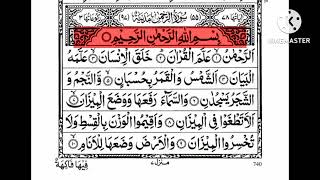 اٰیاتها ۷۸ (۵۵) سُوْرَةُ الرَّحْمٰنِ مَدَنِيَّةٌ (۹۷) رکوعاتها ۳
بِسْمِ اللهِ الرَّحْمٰنِ الرَّحِيْمِ
اَلرَّحْمٰنُ ۙ عَلَّمَ الْقُرْاٰنَ ؕ خَلَقَ الْاِنْسَانَ ۙ عَلَّمَهُ
الْبَيَانَ ۴ اَلشَّمْسُ وَالْقَمَرُ بِحُسْبَانٍ ۪ وَّالنَّجْمُ وَ
الشَّجَرُ يَسْجُدٰنِ ۶ وَالسَّمَآءَ رَفَعَهَا وَوَضَعَ الْمِيْزَانَ ۙ
اَلَّا تَطْغَوْا فِي الْمِيْزَانِ ۸ وَاَقِيْمُوا الْوَزْنَ بِالْقِسْطِ وَلَا
تُخْسِرُوا الْمِيْزَانَ ۹ وَالْاَرْضَ وَضَعَهَا لِلْاَنَامِ ۙ
فِيْهَا فَاكِهَةٌ
منزل ۷
740
KINEMASTER